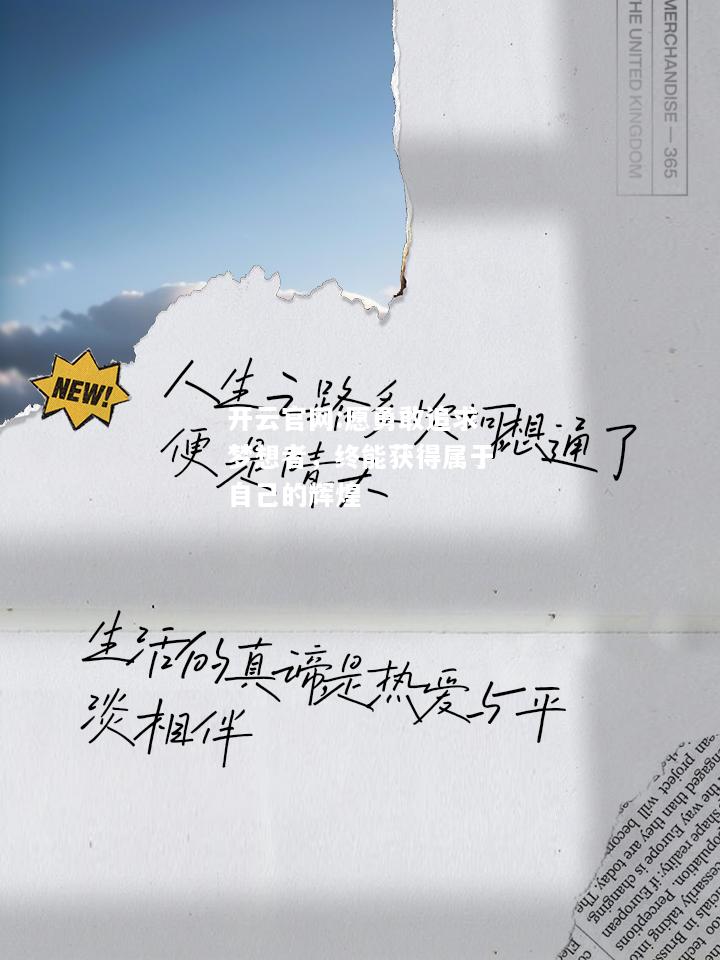 MERCHANDISE — 365
THE UNITED KINGDOM
NEW!
人生之路多坎坷想通了
便是晴天
开云官网,愿勇敢追求
梦想者,终能获得属于
自己的辉煌
生活的真谛是热爱与平
淡相伴
cials in
cessarily taking into
population. Perception
shape reality: if European
the way Europe is changing,
engaged than they are today. The
project will